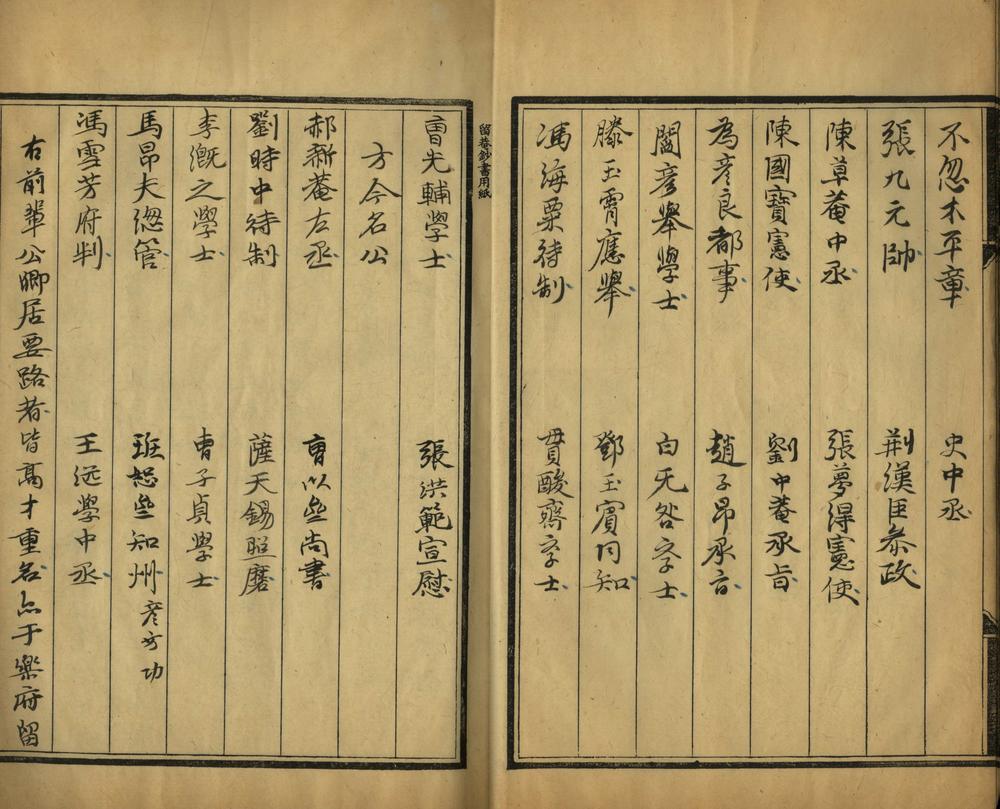 不忽木平章　史中丞
張九元帥　荆漢臣叅政
陳草菴中丞　張夢得憲使
陳國寶憲使　劉中菴承旨
為彦良都事　趙子昂承旨
閻彦舉學士　白无咎学士
滕玉霄應舉　鄧玉賓同知
馮海粟待制　貫酸齋学士
留菴鈔書用紙
曺光輔學士　張洪範宣慰
方今名公
郝新菴左丞　曺以㘴尚書
劉時中待制　薩天錫照磨
李溉之學士　曺子貞學士
馬昂夫緫管　班恕㘴知州
馮雪芳府判　王继學中丞
右前輩公卿居要路者皆高才重名亦于樂府留